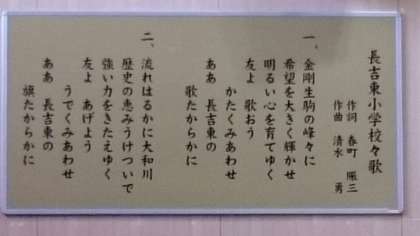 長吉東小学校々歌
作詞 春町 照三
作曲 清水 勇
一、金剛生駒の峰々に
希望を大きく輝かせ
明るい心を育てゆく
友よ 歌おう
かたくみあわせ
ああ 長吉東の
歌たからかに
二、流れはるかに大和川
歴史の恵みうけついで
強い力をきたえゆく
友よ あげよう
うでくみあわせ
ああ 長吉東の
旗たからかに